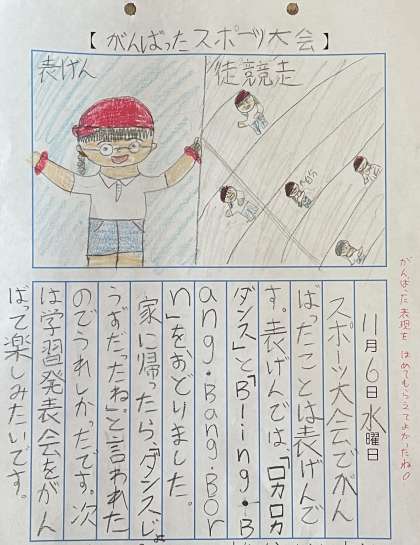 【 がんばったスポーツ大会 】
表げん
徒競走
11月6日水曜日
スポーツ大会でがん
ばったことは表げんで
す。表げんでは、「ロカロカ
ダンス」と「Bling・B
ang・Bang・Bor
n」をおどりました。
家に帰ったら、「ダンスじょ
うずだったね。」と言われた
のでうれしかったです。次
は学習発表会をがん
ばって楽しみたいです。
がんばった表現を ほめてもらえてよかったね。